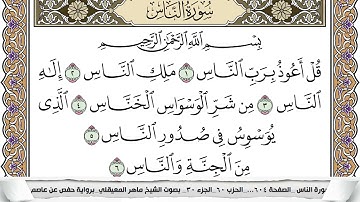 سُورَةُ النَّاسِ
بِسْمِ اللَّهِ الرَّحْمَٰنِ الرَّحِيمِ
قُلْ أَعُوذُ بِرَبِّ النَّاسِ ١ مَلِكِ النَّاسِ ٢ إِلَٰهِ
النَّاسِ ٣ مِن شَرِّ الْوَسْوَاسِ الْخَنَّاسِ ٤ الَّذِي
يُوَسْوِسُ فِي صُدُورِ النَّاسِ ٥
مِنَ الْجِنَّةِ وَالنَّاسِ ٦
ورة الناس_الصفحة ٦٠٤... الحزب ٦٠_الجزء ٣٠_ بصوت الشيخ ماهر المعيقلي_ برواية حفص عن عاصم